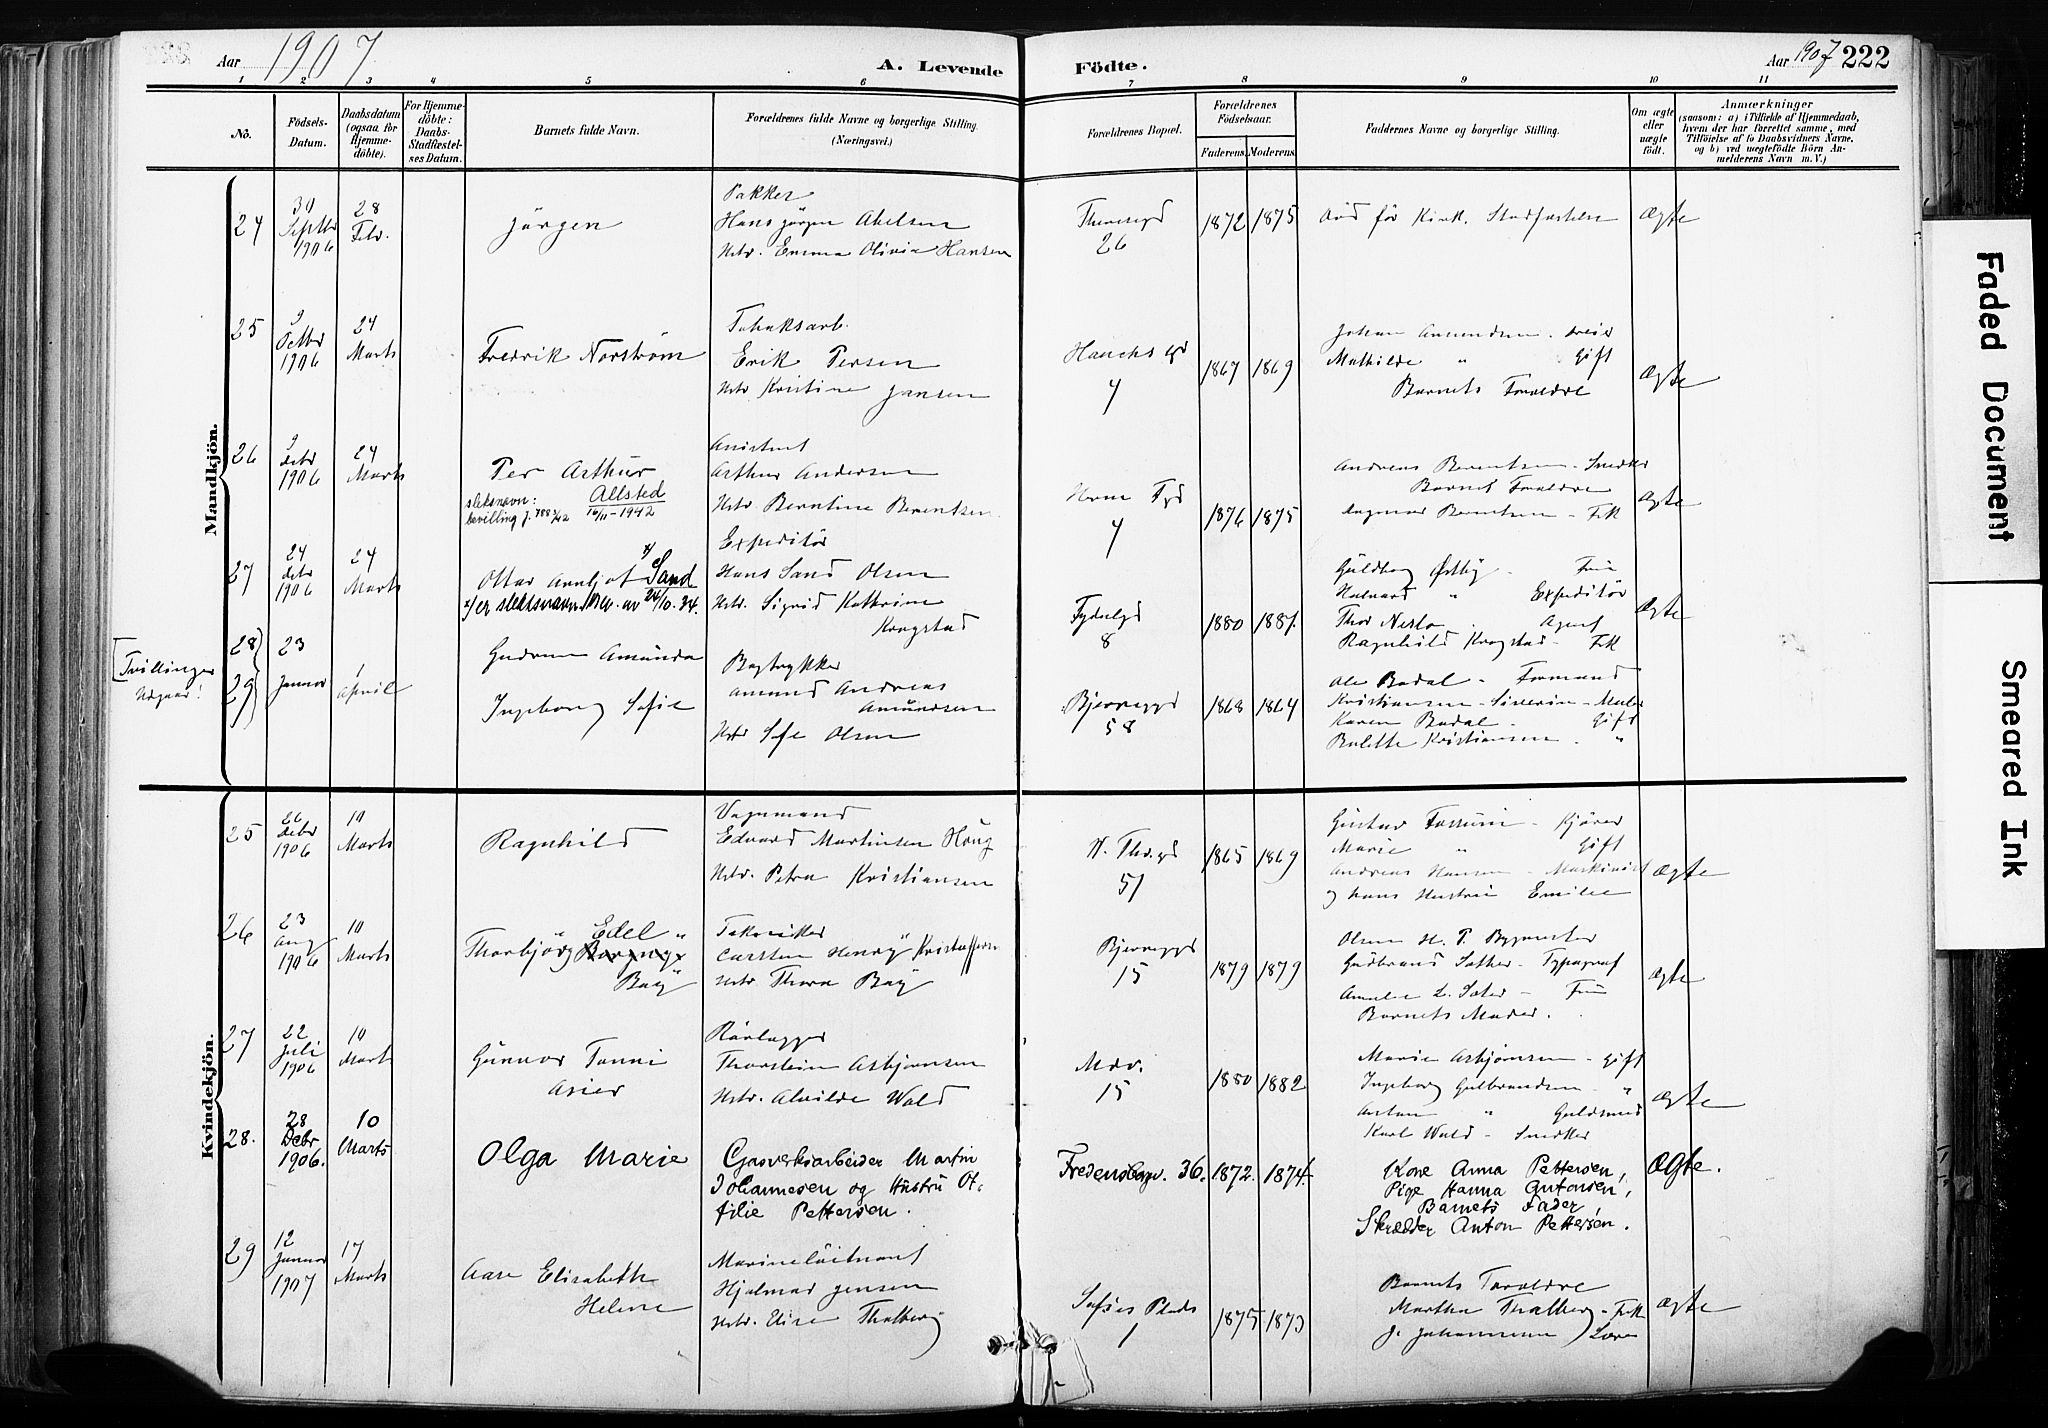 Aar 1907
A. Levende Födte.
Aar 1907 222
1 2 3 4 5 6 7 8 9 10 11
No.
Födsels-Datum.
Daabsdatum (ogsaa for Hjemmedöbte).
For Hjemmedöbte: Daabs-Stadfæstelses Datum.
Barnets fulde Navn.
Forældrenes fulde Navne og borgerlige Stilling. (Næringsvei.)
Forældrenes Bopæl.
Forældrenes Födselsaar.
Faderens. Moderens.
Faddernes Navne og borgerlige Stilling.
Om ægte eller uægte födt.
Anmærkninger
(saasom: a) i Tilfælde af Hjemmedaab, hvem der har forrettet samme, med Tilföielse af to Daabsvidners Navne, og b) ved uægtefödte Börn Anmelderens Navn m. V.)
Mandkjön.
24
Septbr 1906
28 Febr.
Jörgen
Pakker
Hans Jörgen Abelsen
Hstr. Emma Olivia Hansen
26
1872 1875
Ægte
25
1906
24 Marts
Fredrik Norström
Tobaksarb.
Erik Persen
Hstr Kristine Jansen
4
1867 1869
Mathilde " Gift
Barnets Forældre
Ægte
26
9 Debr 1906
24 Marts
Per Arthur
sleksnavn: Allsted
bevilling 16/11-1942
Arthur Andersen
Hstr. Berntine Berentsen
4
1876 1875
Andreas Berentsen - Snedker
Barnets Forældre
Berntsen - Frk
Ægte
27
24 Debr 1906
24 Marts
Ottar Arnljot x/ Sand
x/ er sleksnavn 24/10.34.
Expeditör
Hans Sand Olsen
Hstr. Sigrid Kathrine Krogstad
8
1880 1881.
Guldborg Østby - Frue
Halvard " Expeditör
Thor Nesto - Agent
Ragnhild Krogstad - Frk
Ægte
[Tvillinger
28
29
23 Januar
1 April
Gudrun Amanda
Ingeborg Sofie
Bogtrykker
Amund Andreas Amundsen
Hstr Sofie Olsen
Bjerregd 58
1868 1864
Ole Badal - Formand
Kristiansen - Severin - Maler
Karen Badal - Gift
Bolette Kristiansen - "
Kvindekjön.
25
26 Debr 1906
10 Marts
Ragnhild
Vognmand
Edvard Martinsen Haug
Hstr. Petra Kristiansen
51
1865 1869
Marie " Gift
Andreas Hansen - Maskinist
og hans Hustru Emilie
Ægte
26
23 Aug 1906
10 Marts
Thorbjörg Edel
Böy
Carsten Henry Kristoffersen
Hstr. Thora Böy
Bjerregd 15
1879 1879
Olsen H. P. Bygmester
Gudbrand Sæther - Typograf
Frue
Barnets Moder.
Ægte
27
22 Juli 1906
10 Marts
Gunnor Fanni
Rörlægger
Thorstein Asbjørnsen
Hstr. Alvilde Wold
15
1880 1882
Marie Asbjørnsen - Gift
Ingeborg Gulbrandsen - "
Anton " Guldsmed
Karl Wold - Snedker
Ægte
28.
28 Debr 1906.
10 Marts
Olga Marie
Gasverksarbeider Martin
Johannesen og Hustru Ot-
tilie Pettersen.
Fredensborgv. 36.
1872. 1874.
Kone Anna Pettersen,
Pige Hanna Antonsen,
Barnets Fader
Skrædder Anton Pettersen.
Ægte.
29
12 Januar 1907
17 Marts
Aase Elisabeth
Helene
Marineløitnant
Hjalmar Jensen
Hstr. Elise Thalberg
Sofies Plads 1
1875 1873
Barnets Forældre
Martha Thalberg - Frk
J. Johannesen
Ægte
Faded Document
Smeared Ink